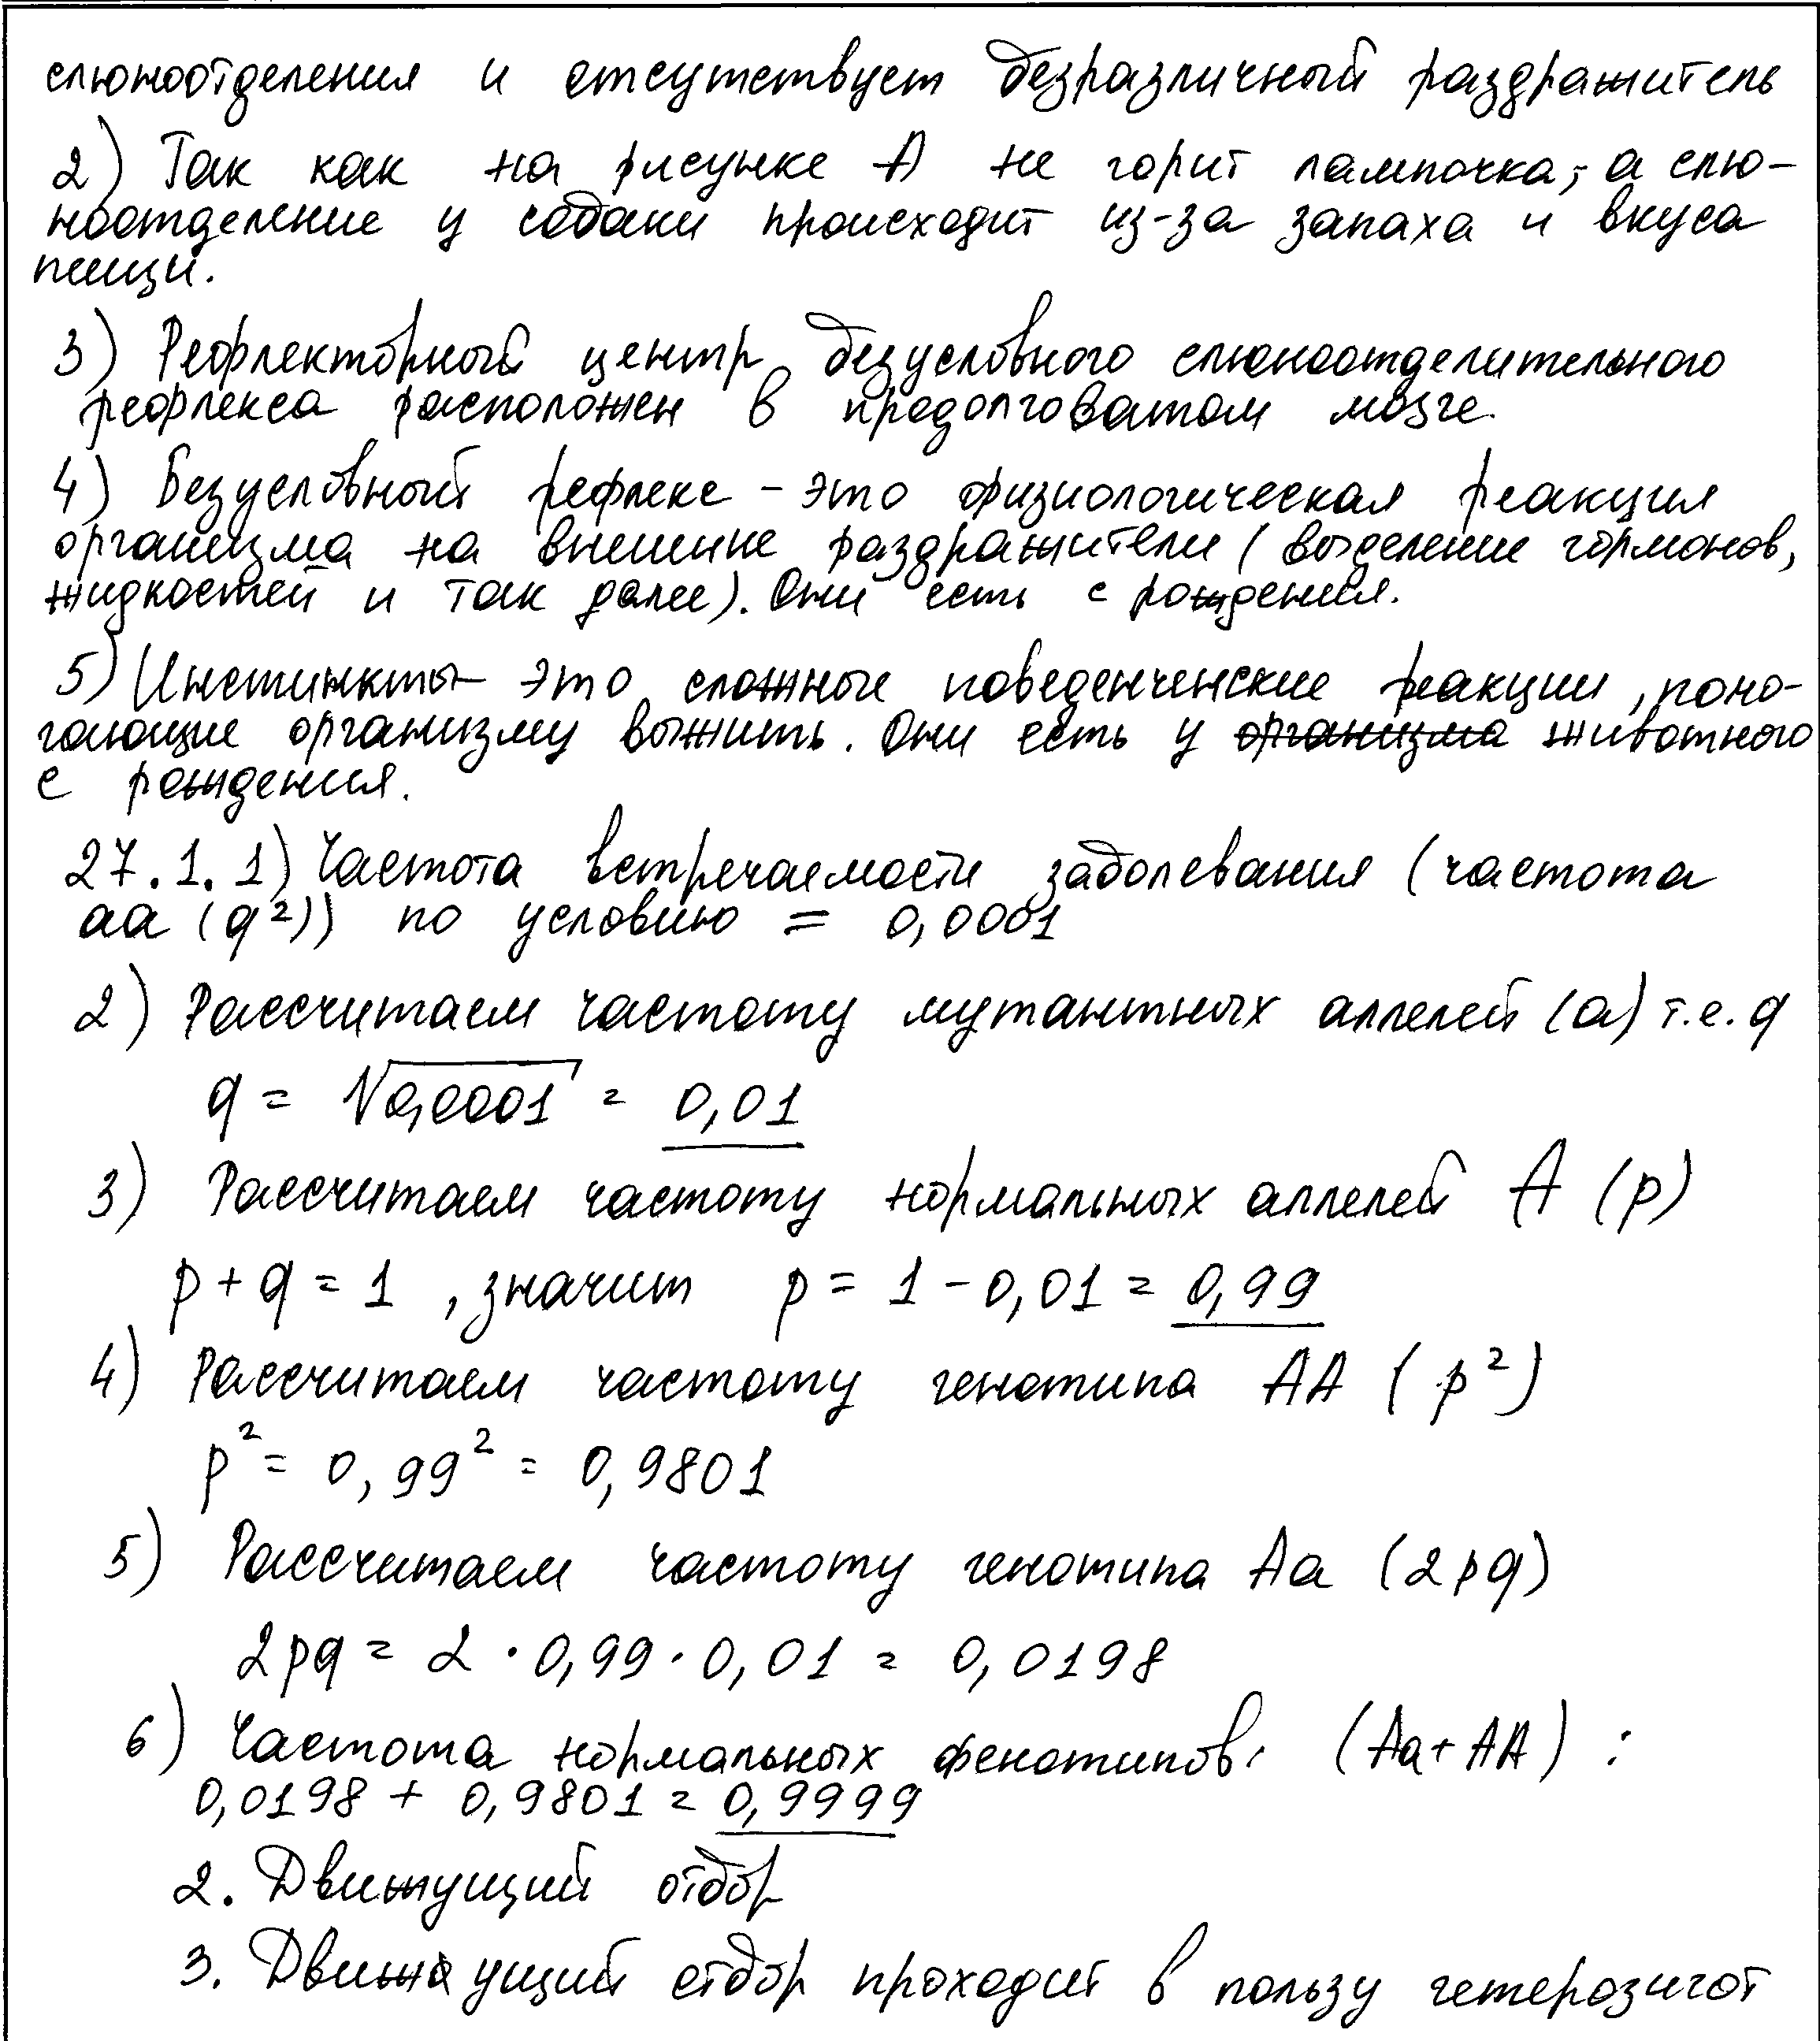 слюноотделения и отсутствует безразличный раздражитель
2) Так как на рисунке А не горит лампочка, а слю-
ноотделение у собаки происходит из-за запаха и вкуса
пищи.
3) Рефлекторный центр безусловного слюноотделительного
рефлекса расположен в продолговатом мозге.
4) Безусловный рефлекс - это физиологическая реакция
организма на внешние раздражители (выделение гормонов,
жидкостей и так далее). Они есть с рождения.
5) Инстинкты - это сложные поведенченские реакции, помо-
гающие организму выжить. Они есть у организма животного
с рождения.
27.1.1) Частота встречаемости заболевания (частота
аа (q²)) по условию = 0,0001
2) Рассчитаем частоту мутантных аллелей (а) т.е. q
q = √0,0001 = 0,01
3) Рассчитаем частоту нормальных аллелей А (p)
p + q = 1, значит p = 1 - 0,01 = 0,99
4) Рассчитаем частоту генотипа АА (p²)
p² = 0,99² = 0,9801
5) Рассчитаем частоту генотипа Аа (2pq)
2pq = 2 · 0,99 · 0,01 = 0,0198
6) Частота нормальных фенотипов (Аа + АА) :
0,0198 + 0,9801 = 0,9999
2. Движущий отбор
3. Движущий отбор проходит в пользу гетерозигот